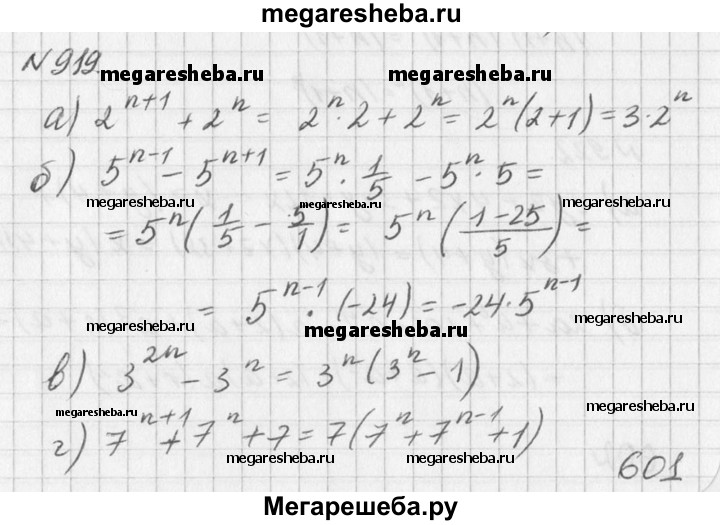 megaresheba.ru
N 919.
megaresheba.ru megaresheba.ru
а) 2^{n+1} + 2^n = 2^n · 2 + 2^n = 2^n (2+1) = 3 · 2^n
б) 5^{n-1} - 5^{n+1} = 5^n · 1/5 - 5^n · 5 =
megaresheba.ru megaresheba.ru megaresheba.ru
= 5^n (1/5 - 5/1) = 5^n ((1-25)/5) =
= 5^{n-1} · (-24) = -24 · 5^{n-1}
megaresheba.ru megaresheba.ru
в) 3^{2n} - 3^n = 3^n (3^n - 1)
megaresheba.ru megaresheba.ru
г) 7^{n+1} + 7^n + 7 = 7 (7^n + 7^{n-1} + 1)
megaresheba.ru megaresheba.ru
601
Мегарешеба.ру